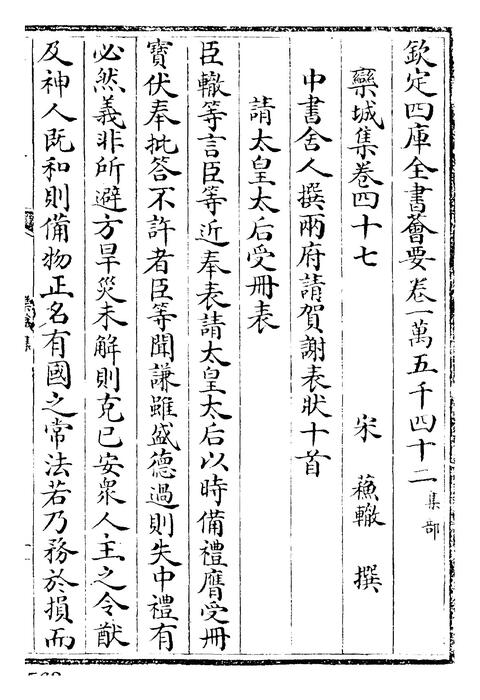 欽定四庫全書薈要卷一萬五千四十二集部
欒城集卷四十七 宋 蘓轍 撰
中書舍人撰兩府請賀謝表狀十首
請太皇太后受冊表
臣轍等言臣等近奉表請太皇太后以時備禮膺受冊
寳伏奉批答不許者臣等聞謙雖盛德過則失中禮有
必然義非所避方旱災未解則克已安衆人主之令猷
及神人既和則備物正名有國之常法若乃務於損而